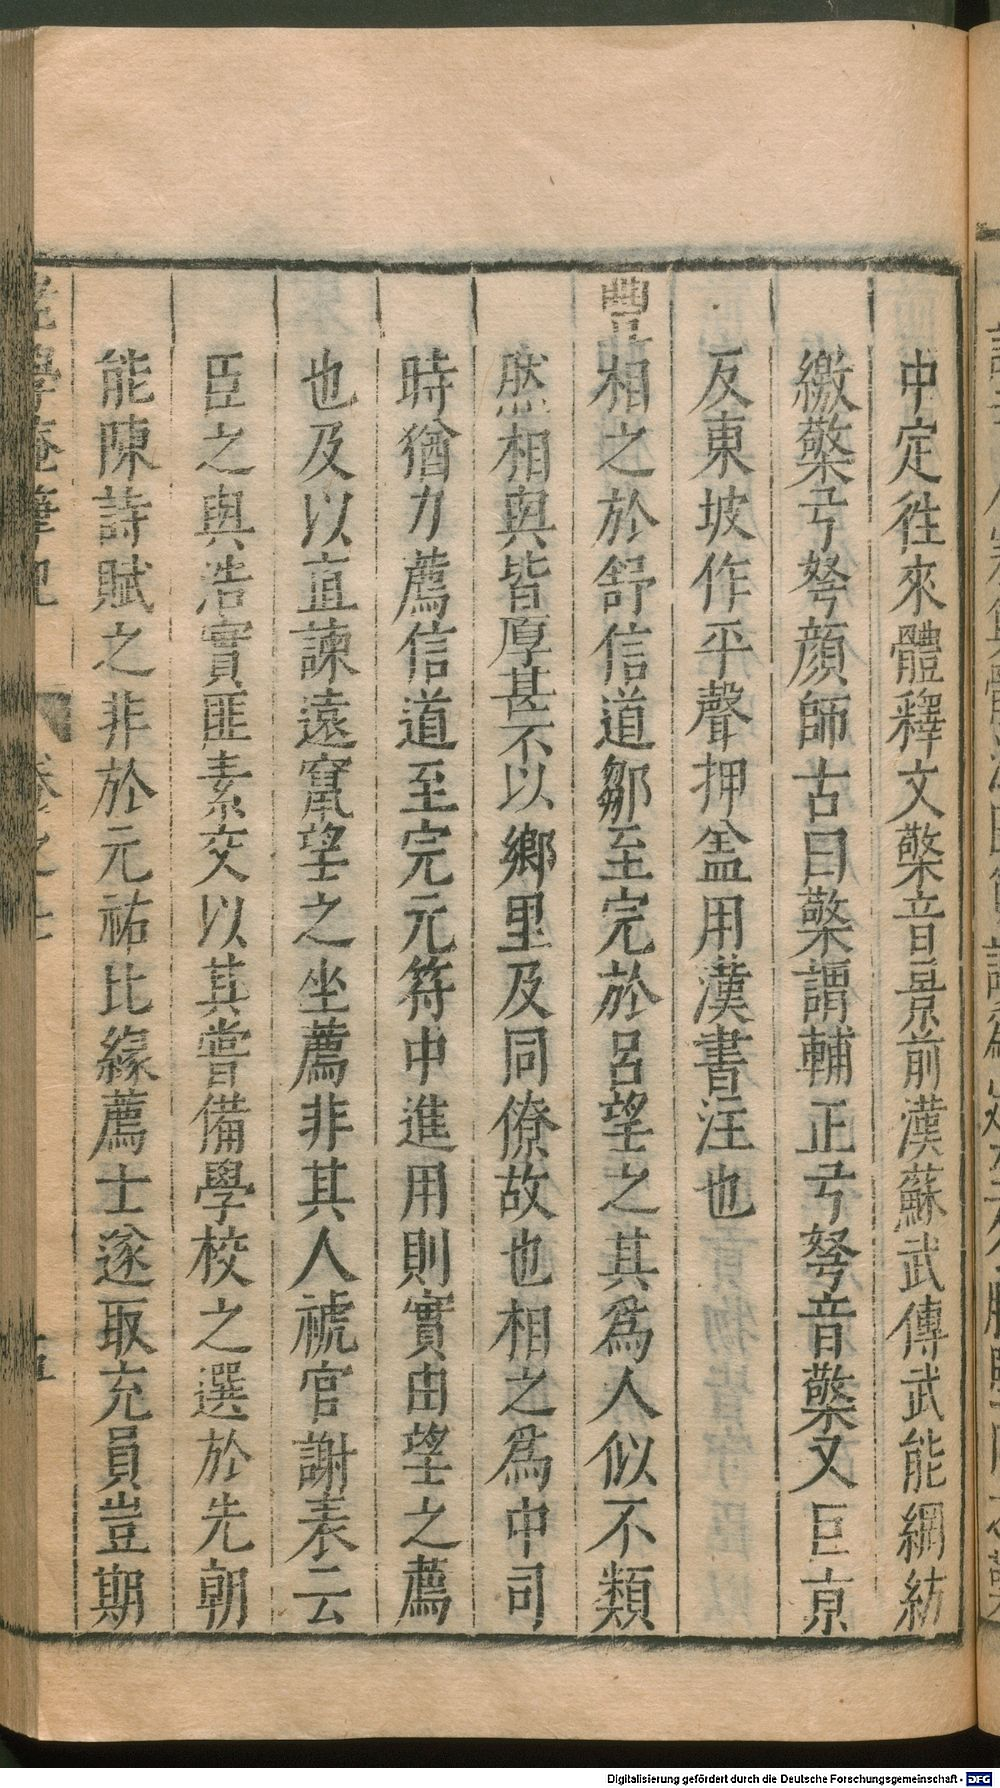 中定徃來體釋文檠音景前漢蘇武傳武能網紡
繳檠弓弩顔師古曰檠謂輔正弓弩音檠又巨京
反東坡作平聲押盖用漢書注也
豐相之於舒信道鄒至完於呂望之其爲人似不類
然相與皆厚甚不以鄉里及同僚故也相之爲中司
時猶力薦信道至完元符中進用則實由望之薦
也及以直諫遠竄望之坐薦非其人禠官謝表云
臣之與浩實匪素交以其嘗備學校之選於先朝
能陳詩賦之非於元祐比緣薦士遂取充員豈期
老學庵筆記 卷之七
Digitalisierung gefördert durch die Deutsche Forschungsgemeinschaft - DFG